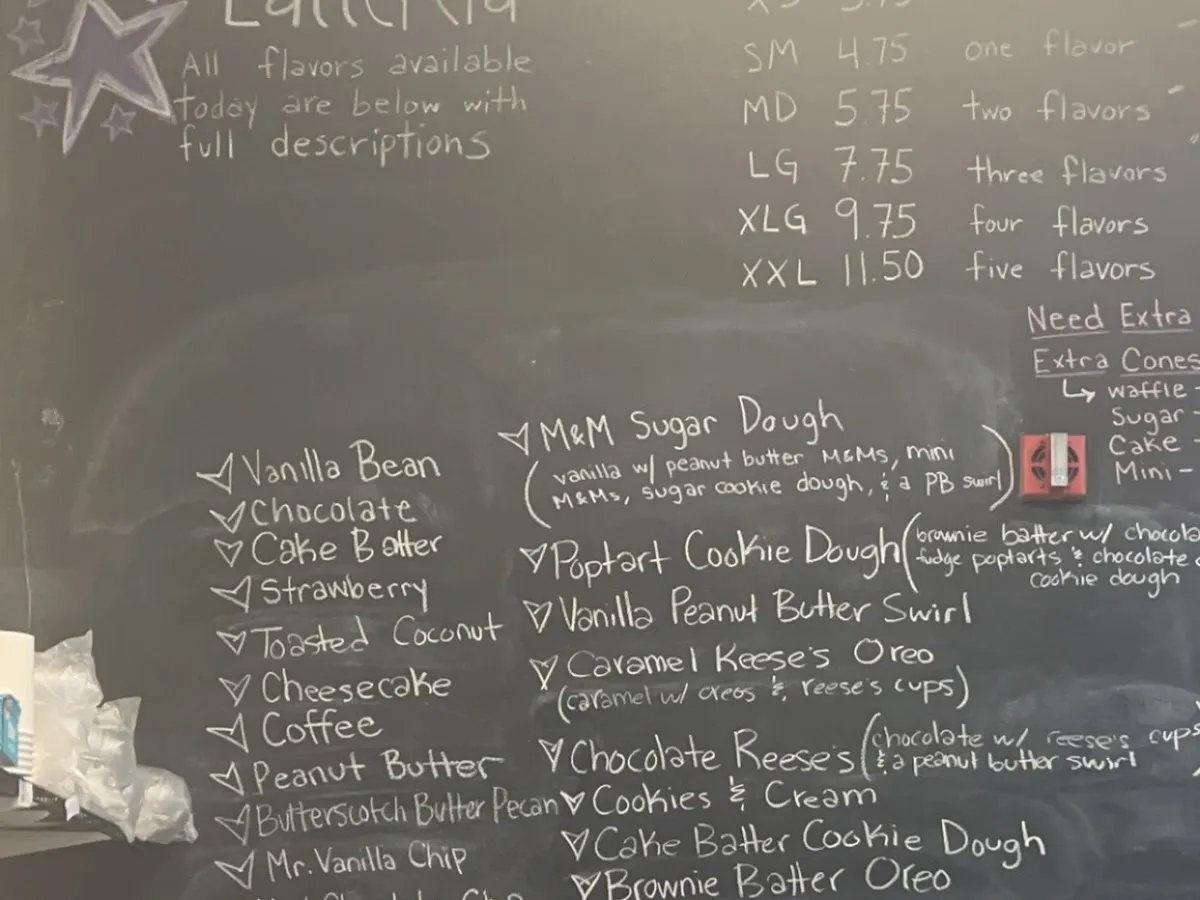 All flavors available
today are below with
full descriptions
SM 4.75 one flavor
MD 5.75 two flavors
LG 7.75 three flavors
XLG 9.75 four flavors
XXL 11.50 five flavors
Need Extra
Extra Cones
waffle -
Sugar -
Cake -
Mini -
Vanilla Bean
Chocolate
Cake Batter
Strawberry
Toasted Coconut
Cheesecake
Coffee
Peanut Butter
Butterscotch Butter Pecan
Mr. Vanilla Chip
M&M Sugar Dough
(vanilla w/ peanut butter M&Ms, mini
M&Ms, sugar cookie dough, & a PB swirl)
Poptart Cookie Dough (brownie batter w/ chocola
fudge poptarts & chocolate
cookie dough
Vanilla Peanut Butter Swirl
Caramel Reese's Oreo
(caramel w/ oreos & reese's cups)
Chocolate Reese's (chocolate w/ reese's cups
& a peanut butter swirl
Cookies & Cream
Cake Batter Cookie Dough
Brownie Batter Oreo